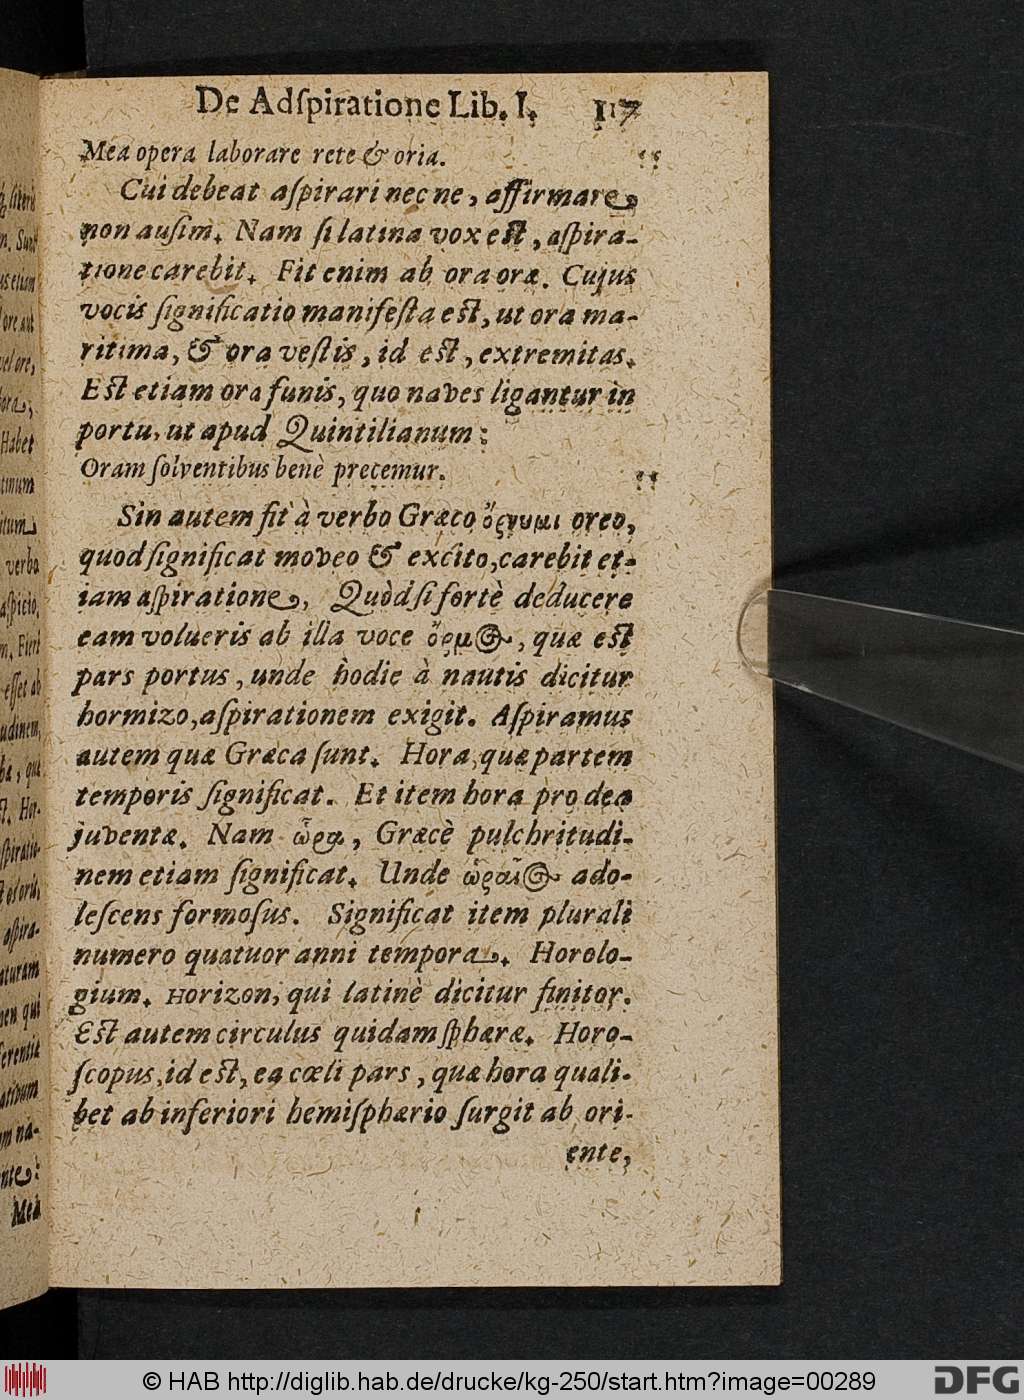 De Adſpiratione Lib. I. 117
Mea opera laborare rete & oria.
Cui debeat aſpirari nec ne, affirmare
non auſim. Nam ſi latina vox eſt, aſpira-
tione carebit. Fit enim ab ora oræ. Cujus
vocis ſignificatio manifeſta eſt, ut ora ma-
ritima, & ora veſtis, id eſt, extremitas.
Eſt etiam ora funis, quo naves ligantur in
portu, ut apud Quintilianum:
Oram ſolventibus benè precemur.
Sin autem fit à verbo Græco ὄρνυμι oreo,
quod ſignificat moveo & excito, carebit et-
iam aſpiratione, Quòd ſi fortè deducere
eam volueris ab illa voce ὅρμος, quæ eſt
pars portus, unde hodie à nautis dicitur
hormizo, aſpirationem exigit. Aſpiramus
autem quæ Græca ſunt. Hora, quæ partem
temporis ſignificat. Et item hora pro dea
juventæ. Nam ὥρα, Græcè pulchritudi-
nem etiam ſignificat. Unde ὡραῖος ado-
leſcens formoſus. Significat item plurali
numero quatuor anni tempora. Horolo-
gium. Horizon, qui latinè dicitur finitor.
Eſt autem circulus quidam ſphæræ. Horo-
ſcopus, id eſt, ea cœli pars, quæ hora quali-
bet ab inferiori hemiſphærio ſurgit ab ori-
ente,
© HAB http://diglib.hab.de/drucke/kg-250/start.htm?image=00289
DFG